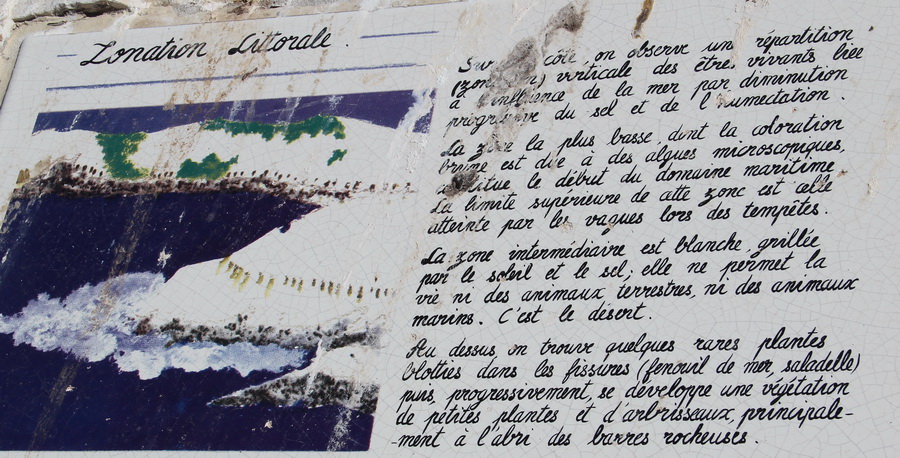 Zonation Littorale.
Sur côté, on observe une répartition
(zonation) verticale des êtres vivants liée
à l'influence de la mer par diminution
progressive du sel et de l'humectation.
La zone la plus basse, dont la coloration
brune est due à des algues microscopiques,
constitue le début du domaine maritime
La limite supérieure de cette zone est celle
atteinte par les vagues lors des tempêtes.
La zone intermédiaire est blanche, grillée
par le soleil et le sel; elle ne permet la
vie ni des animaux terrestres, ni des animaux
marins. C'est le désert.
Au dessus, on trouve quelques rares plantes
blotties dans les fissures (fenouil de mer, saladelle)
puis, progressivement, se développe une végétation
de petites plantes et d'arbrisseaux, principale-
-ment à l'abri des barres rocheuses.